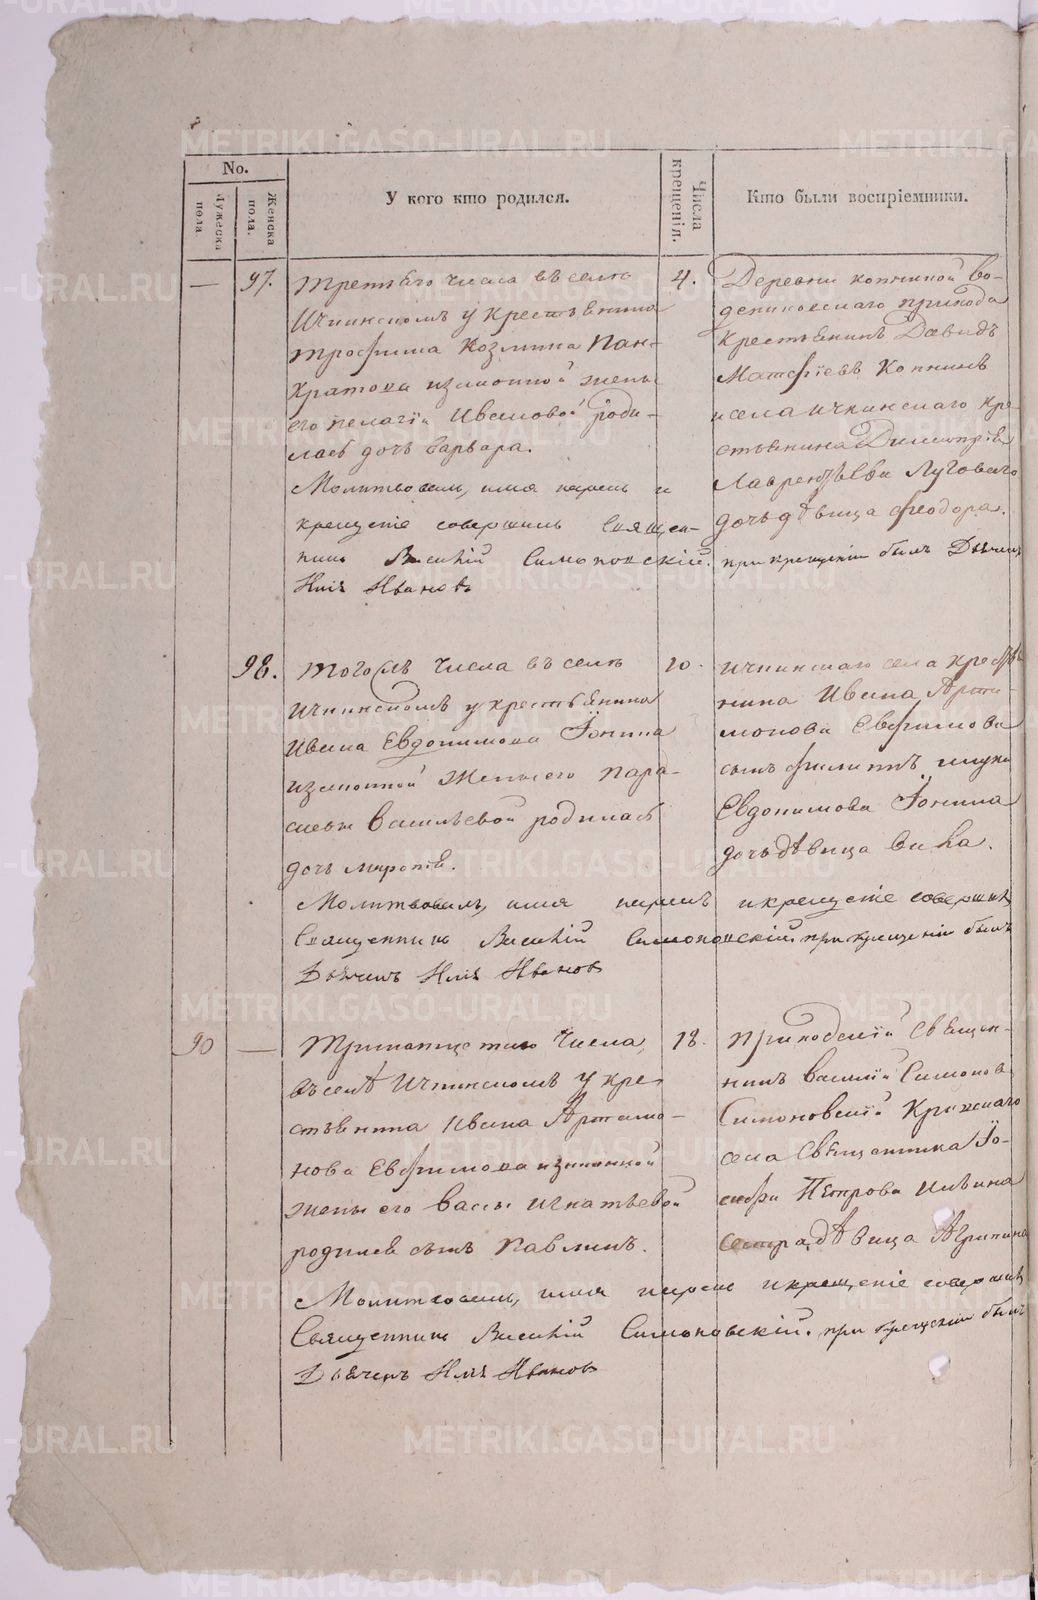 No.
Мужеска пола.
Женска пола.
У кого кто родился.
Числа крещенія.
Кто были воспріемники.
—
97.
Третьяго числа въ селѣ
Ичкинскомъ у крестьянина
Трофима Козмина Пан-
кратова изаконной жены
его Пелагіи Ивановой роди-
лась дочь Варвара.
Молитвовалъ, имя нарекъ и
крещеніе совершилъ Священ-
никъ Василій Симоновскій.
Илія Ивановъ
4.
Деревни Копниной Во-
прихода
крестьянинъ Давидъ
Матфіевъ Копнинъ
и села Ичкинскаго кре-
стьянина Димитрія
Лаврентьева Луговаго
дочь дѣвица Феодора.
при крещеніи былъ Дьячекъ
98.
Тогожъ числа въ селѣ
Ичкинскомъ у крестьянина
Ивана Евдокимова Іонина
изаконной жены его Пара-
скевы Васильевой родилась
дочь
Молитвовалъ, имя нарекъ и крещеніе совершилъ
Священникъ Василій Симоновскій. при крещеніи былъ
Дьячекъ Илія Ивановъ
10.
Ичкинскаго села крестья-
нина Ивана Арта-
монова Евфимова
сынъ Филиппъ и
Евдокимова Іонина
дочь дѣвица
90
—
Тринатцетаго числа,
въ селѣ Ичкинскомъ у кре-
стьянина Ивана Артамо-
нова Евфимова изаконной
жены его Вассы Игнатьевой
родился сынъ Павлинъ.
Молитвовалъ, имя нарекъ и крещеніе совершилъ
Священникъ Василій Симоновскій. при крещеніи былъ
Дьячекъ Илія Ивановъ
18.
Приходскій Священ-
никъ Василій Симонов
Симоновскій
села Священника Іо-
сифа Петрова Ильина
сестра, дѣвица Агрипина
METRIKI.GASO-URAL.RU